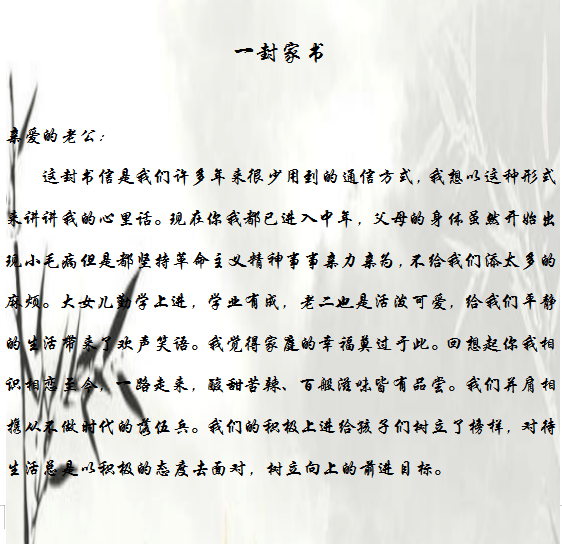 一封家书
亲爱的老公：
这封书信是我们许多年来很少用到的通信方式，我想以这种形式
来讲讲我的心里话。现在你我都已进入中年，父母的身体虽然开始出
现小毛病但是都坚持革命主义精神事事亲力亲为，不给我们添太多的
麻烦。大女儿勤学上进，学业有成，老二也是活泼可爱，给我们平静
的生活带来了欢声笑语。我觉得家庭的幸福莫过于此。回想起你我相
识相恋至今，一路走来，酸甜苦辣、百般滋味皆有品尝。我们并肩相
携从不做时代的落伍兵。我们的积极上进给孩子们树立了榜样，对待
生活总是以积极的态度去面对，树立向上的前进目标。